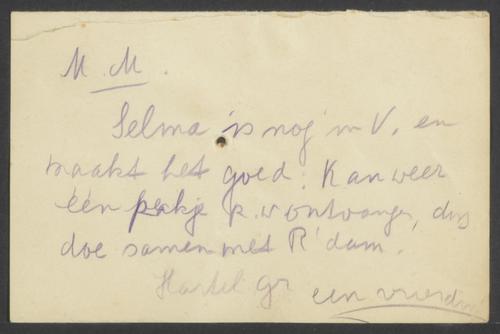 M. M.
Selma is nog in V. en
maakt het goed. Kan weer
één pakje p. w ontvangen, dus
doe samen met R'dam.
Hartel gr
een vriendin